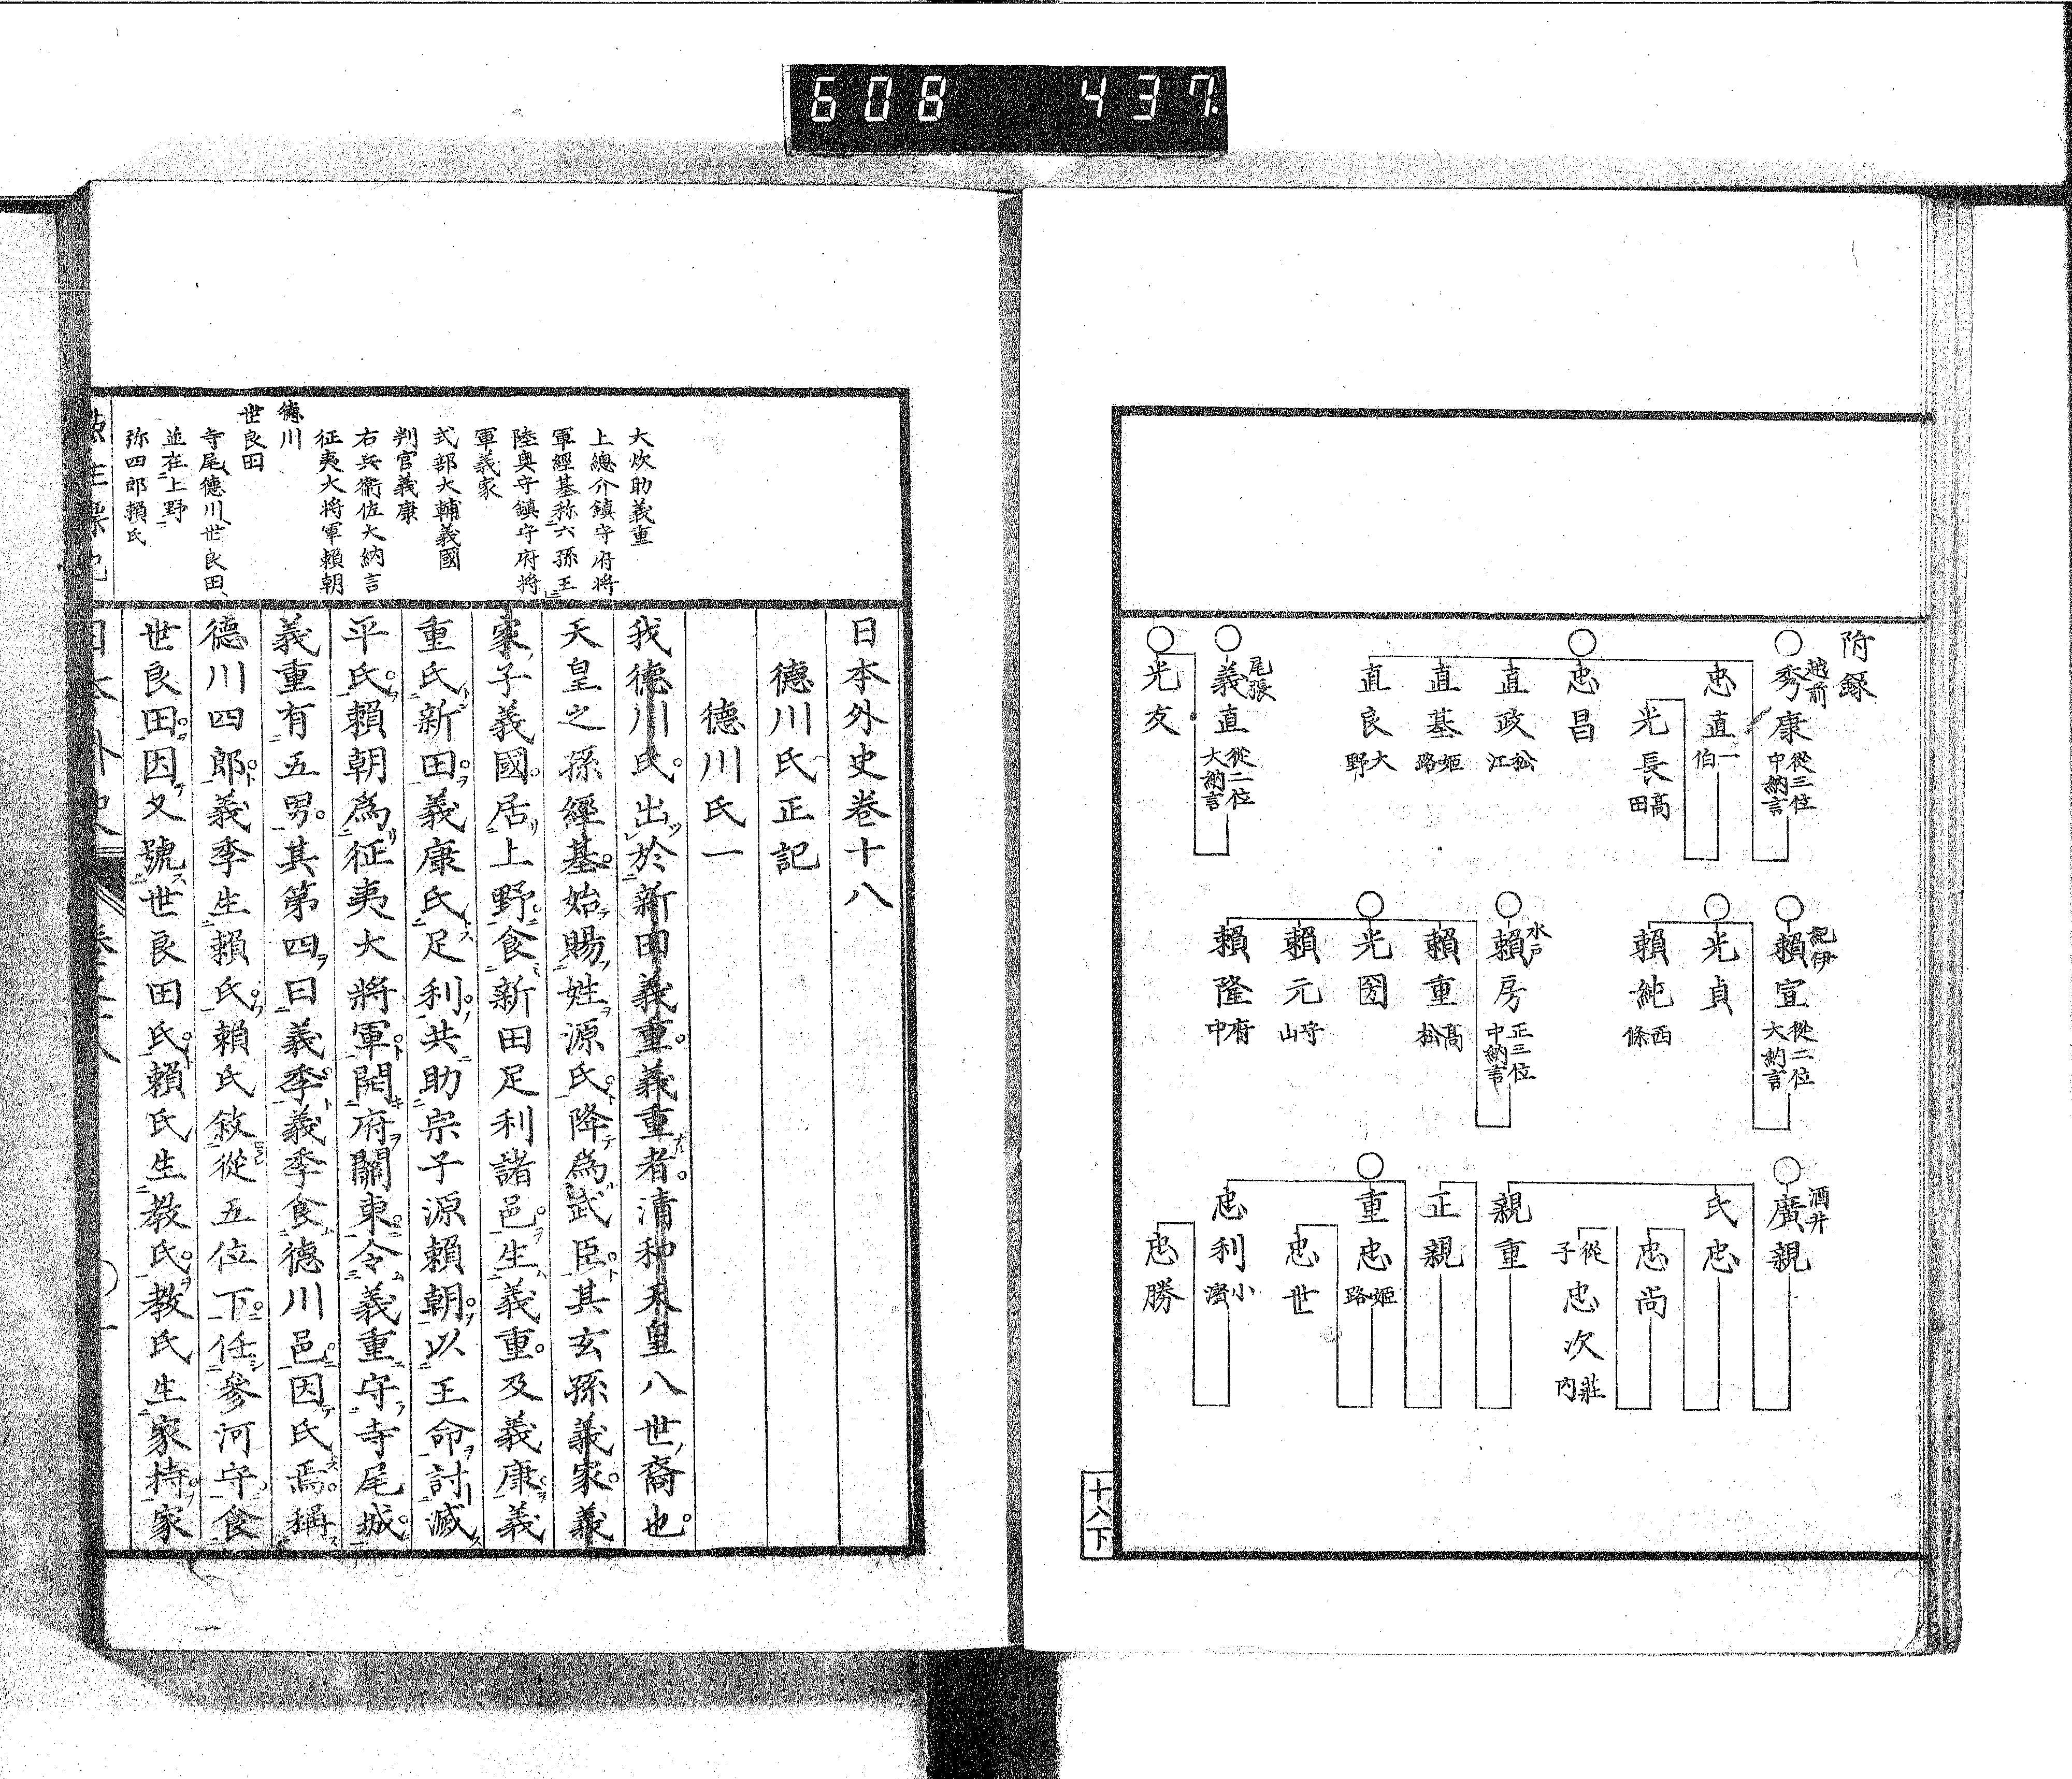 608 437
附録
越前
秀康 從三位中納言
忠直 一伯
光長 高田
忠昌
直政 松江
直基 姫路
直良 大野
尾張
義直 從二位大納言
光友
紀伊
賴宣 從二位大納言
光貞
賴純 西條
水戸
賴房 正三位中納言
賴重 高松
光圀
賴元 守山
賴隆 府中
酒井
廣親
氏忠
忠尚
從子 忠次 莊内
親重
正親
重忠 姫路
忠世
忠利 小濱
忠勝
十八下
大炊助義重
上總介鎮守府將
軍經基称六孫王
陸奥守鎮守府將
軍義家
式部大輔義國
判官義康
右兵衛佐大納言
征夷大将軍賴朝
德川
世良田
寺尾、德川、世良田、
並在上野
弥四郎賴氏
日本外史卷十八
德川氏正記
德川氏一
我德川氏。出於新田義重。義重者。清和天皇八世裔也。
天皇之孫經基。始賜姓源氏。降爲武臣。其玄孫義家。義
家子義國。居上野。食新田足利諸邑。生義重。及義康。義
重氏新田。義康氏足利。共助宗子源賴朝。以王命討滅
平氏。賴朝爲征夷大將軍。開府關東。令義重守寺尾城。
義重有五男。其第四曰義季。義季食德川邑。因氏焉。稱
德川四郎。義季生賴氏。賴氏敘從五位下。任參河守。食
世良田。因又號世良田氏。賴氏生教氏。教氏生家持。家